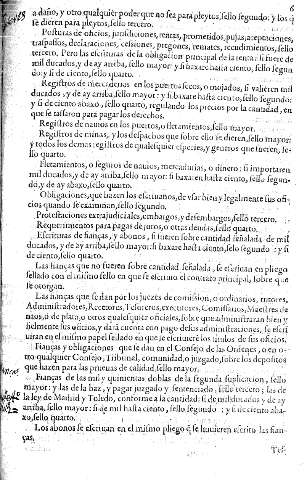 6
a daño, y otro qualquier poder que no sea para pleytos, sello segundo: y los q̃
se dieren para pleytos, sello tercero.
Posturas de oficios, jurisdiciones, rentas, prometidos, pujas, aceptaciones,
traspassos, declaraciones, cessiones, pregones, remates, recudimientos, sello
tercero. Pero las escrituras de la obligacion principal de la renta: si fuere de
mil ducados, y de ay arriba, sello mayor: y si baxare hasta ciento, sello segun
do: y si de ciento, sello quarto.
Registros de mercaderias en los puertos secos, o mojados, si valieren mil
ducados: y de ay arriba, sello mayor: y si baxare hasta ciento, sello segundo:
y si de ciento abaxo, sello quarto, regulando los precios por la cantidad, en
que se tassaron para pagar los derechos.
Registros de nauios en los puertos, o fletamientos, sello mayor.
Registros de minas, y los despachos que sobre ello se dieren, sello mayor:
y todos los demas registros de qualesquier especies, y generos que fueren, se-
llo quarto.
Fletamientos, o seguros de nauios, mercadurias, o dinero: si importaren
mil ducados, y de ay arriba, sello mayor: si baxaren hasta ciento, sello segun-
do, y de ay abaxo, sello quarto.
Obligaciones, que hazen los escriuanos, de vsar bien y legalmente sus ofi
cios quando se examinan, sello segundo.
Protestaciones extrajudiciales, embargos, y desembargos, sello tercero.
Requerimientos para pagas de juros, o otras deudas, sello quarto.
Escrituras de fianças, y abonos, si fueren sobre cantidad señalada de mil
ducados, y de ay arriba, sello mayor: si baxare hasta ciento, sello segundo: y si
de ciento, sello quarto.
Las fianças que no fueren sobre cantidad señalada, se escriuan en pliego
sellado con el mismo sello en que se escriuió el contrato principal, sobre que
se otorgan.
Las fianças que se dan por los juezes de comission, o ordinarios, tutores,
Administradores, Receptores, Tesoreros, executores, Comissarios, Maestres de
naos, o de plata, o otros qualesquier oficiales, sobre que administraràn bien y
fielmente sus oficios, y darà cuenta con pago de sus administraciones, se escri
uan en el mismo papel sellado en que se escriuierē los titulos de sus oficios.
Fianças y obligaciones que se dan en el Consejo de las Ordenes, o en o-
tro qualquier Consejo, Tribunal, comunidad, o juzgado, sobre los depositos
que hazen para las prueuas de calidad, sello mayor.
Fianças de las mil y quinientas doblas de la segunda suplicacion, sello
mayor: y las de la haz, y pagar juzgado y sentenciado, sello tercero: las de
la ley de Madrid y Toledo, conforme a la cantidad: si de mil ducados y de ay
arriba, sello mayor: si de mil hasta ciento, sello segundo: y si de ciento aba-
xo, sello quarto.
Los abonos se escriuan en el mismo pliego q̃ se huuieren escrito las fian-
ças.